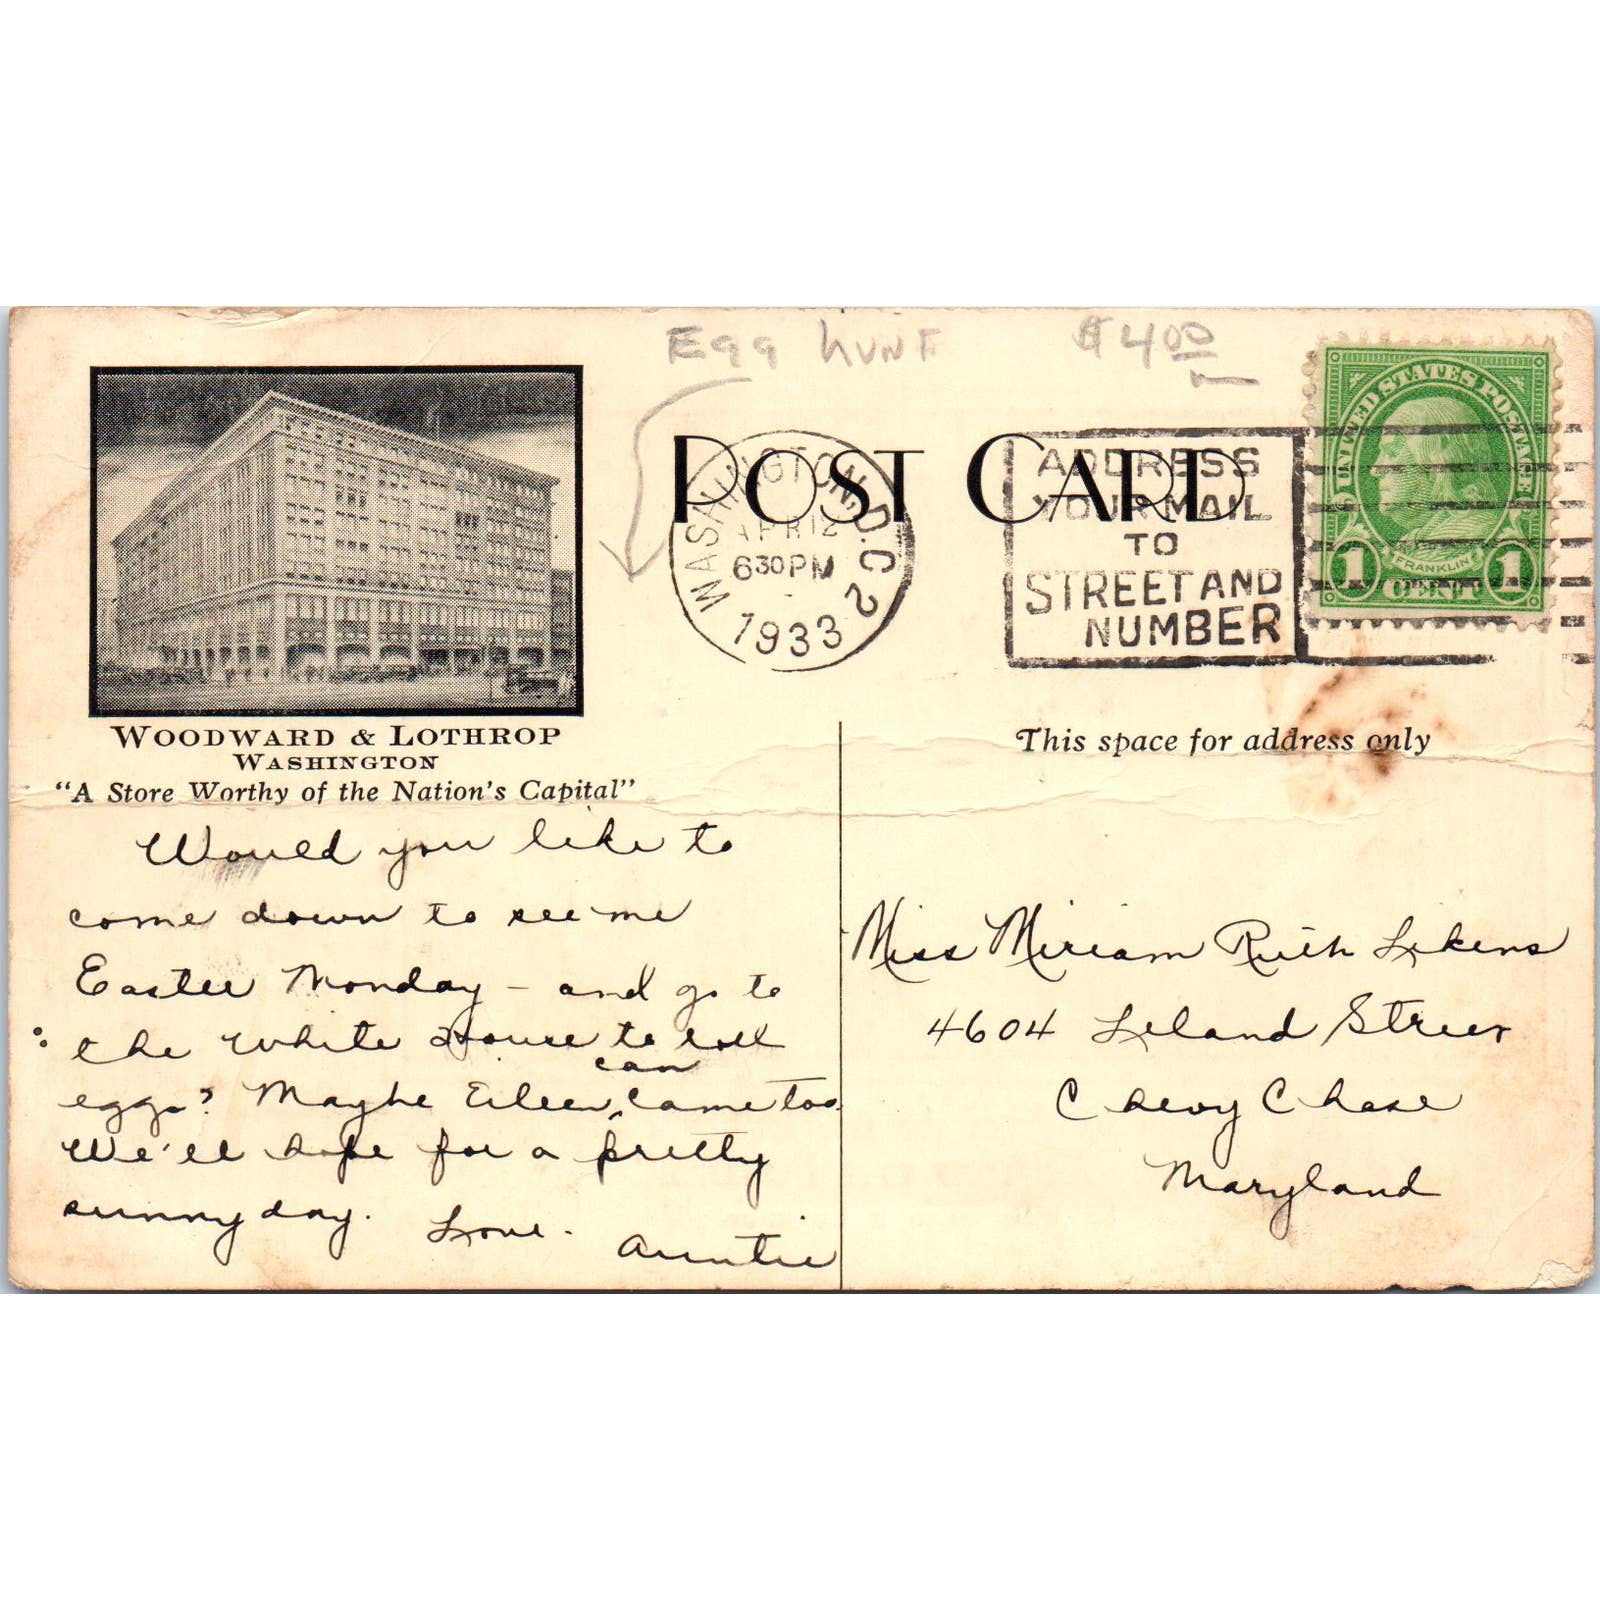 Egg hunt $4 00
POST CARD
WASHINGTON, D.C. 2
APR 12
6 30 PM
1933
ADDRESS
YOUR MAIL
TO
STREET AND
NUMBER
UNITED STATES POSTAGE
FRANKLIN
1 CENT 1
WOODWARD & LOTHROP
WASHINGTON
"A Store Worthy of the Nation's Capital"
This space for address only
Would you like to
come down to see me
Easter Monday - and go to
the White House to roll
can
eggs? Maybe Eileen, came too
We'll hope for a pretty
sunny day. Love.
Auntie
Miss Miriam Ruth Likens
4604 Leland Street
Chevy Chase
Maryland